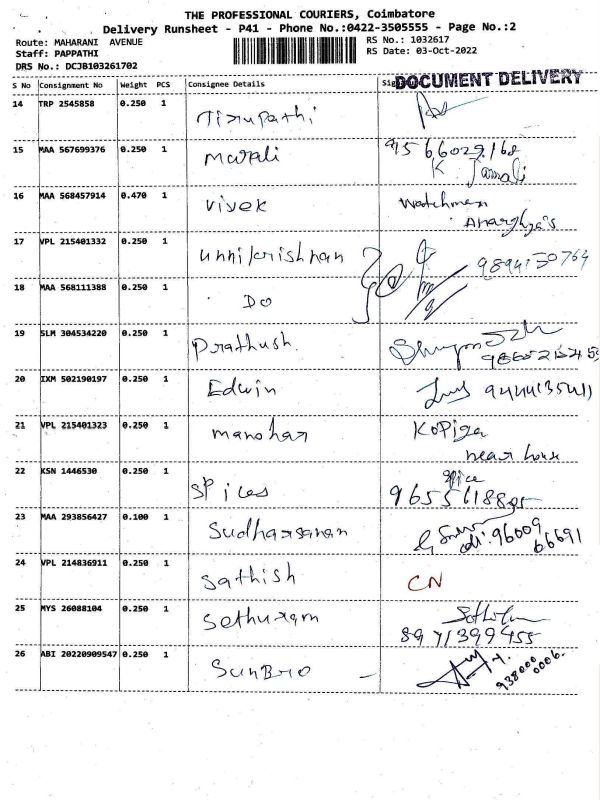 THE PROFESSIONAL COURIERS, Coimbatore
Delivery Runsheet - P41 - Phone No.:0422-3505555 - Page No.:2
Route: MAHARANI AVENUE
RS No.: 1032617
Staff: PAPPATHI
RS Date: 03-Oct-2022
DRS No.: DCJB103261702
DOCUMENT DELIVERY
S No Consignment No Weight PCS Consignee Details
14 TRP 2545858 0.250 1 Tirupathi
15 MAA 567699376 0.250 1 Murali 9566029168
K Jamali
16 MAA 568457914 0.470 1 Vivek Watchman
Anarghya's
17 VPL 215401332 0.250 1 Unnikrishnan 9894130764
18 MAA 568111388 0.250 1 DO
19 SLM 304534220 0.250 1 Prathush.
20 IXM 502190197 0.250 1 Edwin 9444135411
21 VPL 215401323 0.250 1 Manohar Kopiga
near house
22 KSN 1446530 0.250 1 Spices Spice
9655618895
23 MAA 293856427 0.100 1 Sudharsanan 96009
66691
24 VPL 214836911 0.250 1 Sathish CN
25 MYS 26088104 0.250 1 Sethuram
8971399455
26 ABI 20220909547 0.250 1 SunBio 938000
0006.